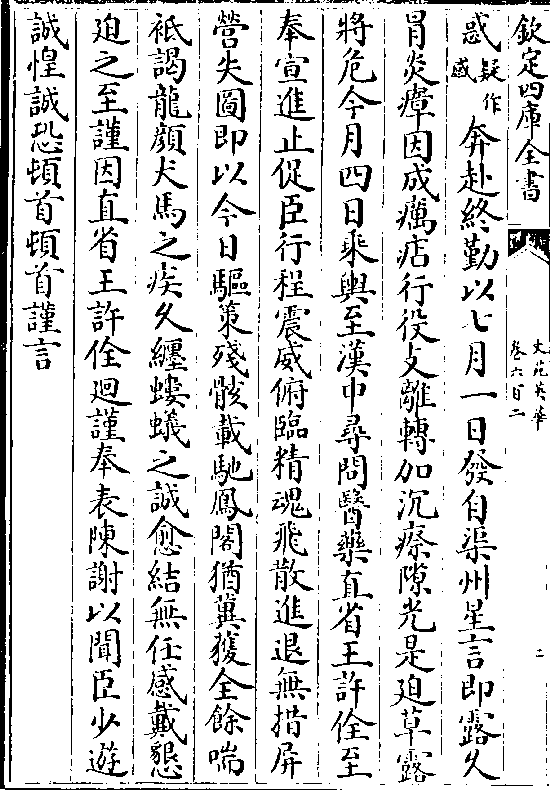 欽定四庫全書
文苑英華
卷六百二
二
惑疑作感奔赴終勤以七月一日發自渠州星言即露久
冒炎瘴因成癘痁行役支離轉加沉瘵隙光是廹草露
將危今月四日乘輿至漢中尋問醫藥直省王許佺至
奉宣進止促臣行程震威俯臨精魂飛散進退無措屏
營失圖即以今日驅策殘骸載馳鳳閣猶冀獲全餘喘
祗謁龍顔犬馬之疾久纒螻蟻之誠愈結無任感戴懇
廹之至謹因直省王許佺廻謹奉表陳謝以聞臣少遊
誠惶誠恐頓首頓首謹言